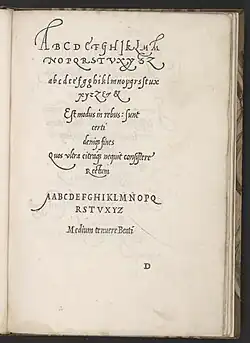 A B C D E F G H I K L M M
N O P Q R S T V X Y Z Z
a b c d e e f g g h i k l m n o p q r s s t u x
x y z z & &
Est modus in rebus: sunt
certi
deniq; fines
Quos ultra citraq; nequit consistere
Rectum
A A B C D E F G H I K L M N O P Q
R S T V X Y Z
Medium tenuere Beati
D